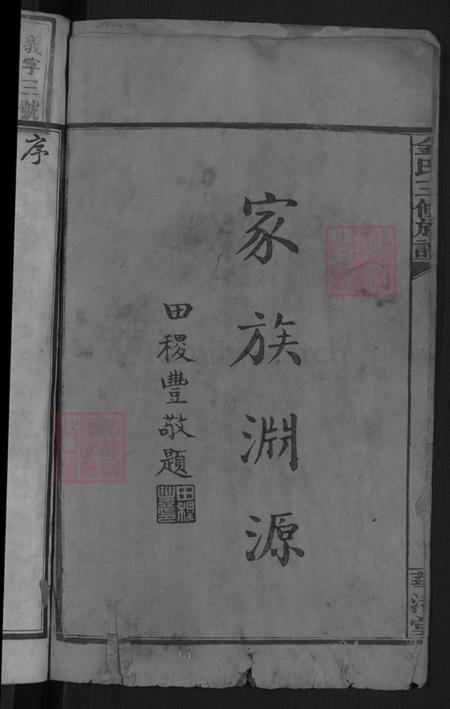 金氏三修族譜
家族淵源
田稷豐敬題
義字三號
序